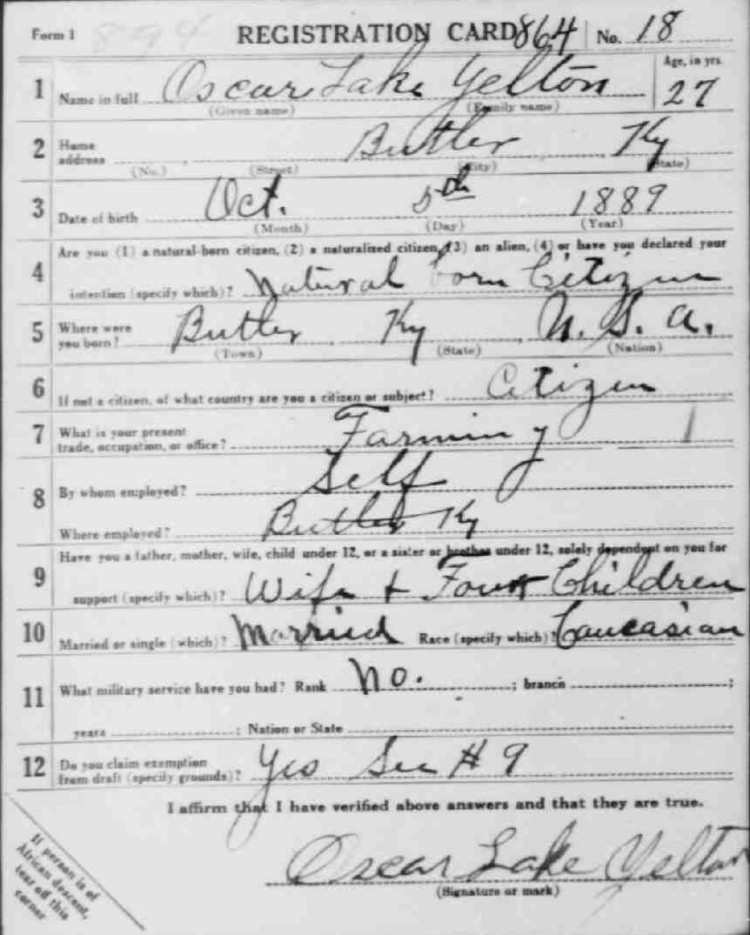 Form 1 894 REGISTRATION CARD 864 No. 18
1 Name in full Oscar Lake Yelton Age, in yrs. 27
(Given name) (Family name)
2 Home address Butler Ky
(No.) (Street) (City) (State)
3 Date of birth Oct. 5th 1889
(Month) (Day) (Year)
4 Are you (1) a natural-born citizen, (2) a naturalized citizen, (3) an alien, (4) or have you declared your
intention (specify which)? Natural born Citizen
5 Where were you born? Butler, Ky, U. S. A.
(Town) (State) (Nation)
6 If not a citizen, of what country are you a citizen or subject? Citizen
7 What is your present trade, occupation, or office? Farming 1
8 By whom employed? Self
Where employed? Butler Ky
9 Have you a father, mother, wife, child under 12, or a sister or brother under 12, solely dependent on you for
support (specify which)? Wife + Four Children
10 Married or single (which)? Married Race (specify which)? Caucasian
11 What military service have you had? Rank No. ; branch ;
years ; Nation or State
12 Do you claim exemption from draft (specify grounds)? Yes See # 9
I affirm that I have verified above answers and that they are true.
Oscar Lake Yelton
(Signature or mark)
If person is of
African descent,
tear off this
corner